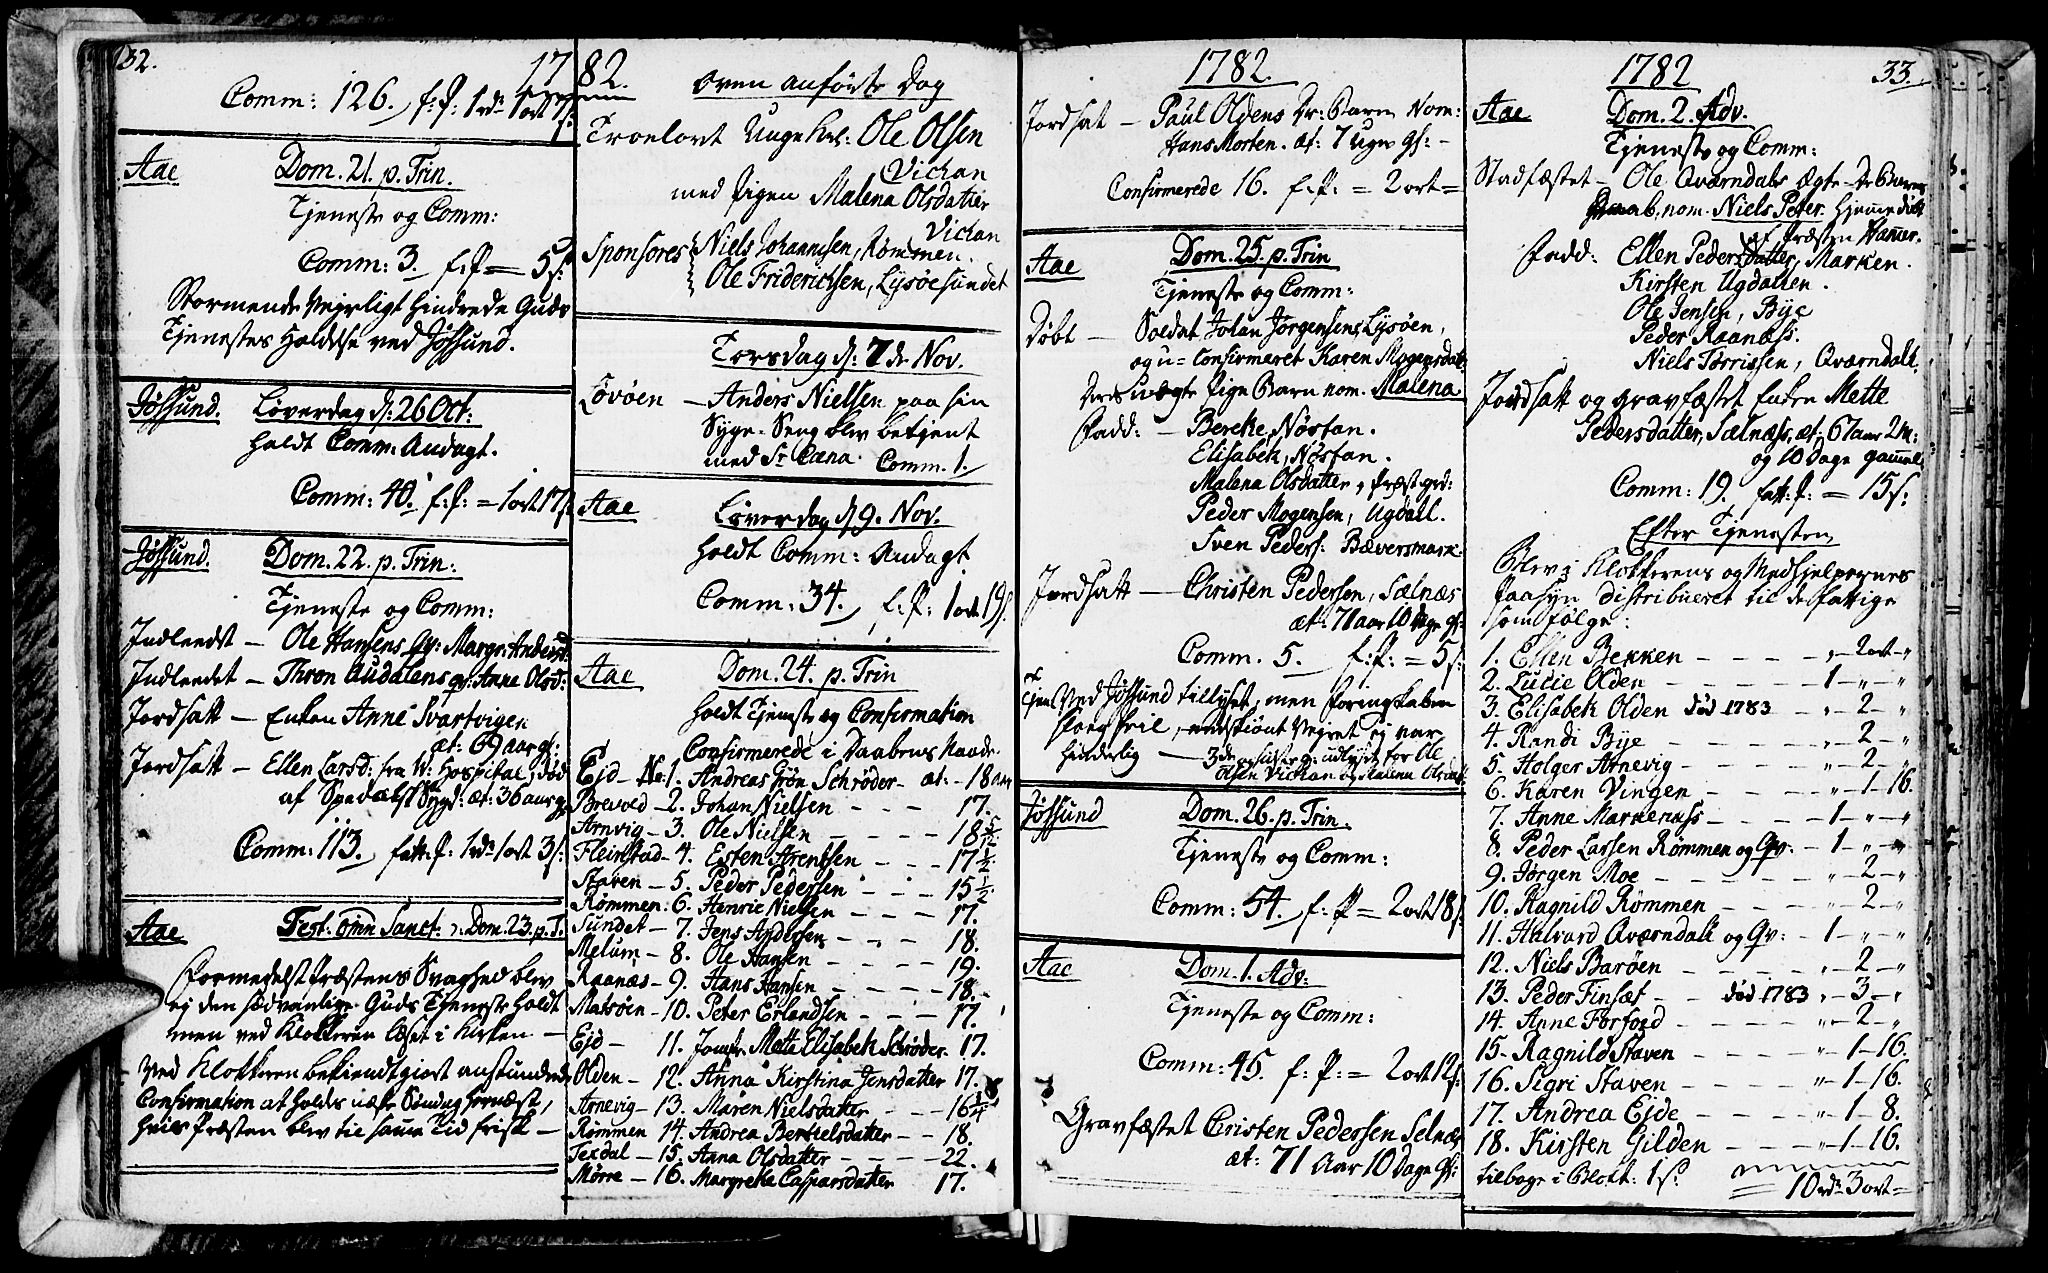 132.
1782.
Comm: 126. f: P: 1 rdr 1 ort 7 s:
Aae Dom. 21. p. Trin.
Tjeneste og Comm:
Comm: 3. f: P = 5 s:
Stormende Vejrligt hindrede Guds
Tjenestes Holdelse ved Jøssund.
Jøssund. Løverdag d: 26 Oct:
holdt Comm. Andagt.
Comm: 40. f: P: = 1 ort 17 s:
Jøssund. Dom. 22. p. Trin:
Tjeneste og Comm:
Indleedt – Ole Hansens Qv: Margr: Andersd:
Indleedet – Thron Audalens qv: Anne Olsd:
Jordsatt – Enken Anne Svartvigen
æt: 69 aar gl:
Jordsatt – Ellen Larsd: fra W: Hospital, død
af Spedalsk Sygd: æt: 36 aar gl:
Comm: 113. fatt: P: 1 rdr 1 ort 3 s:
Aae Fest. omn Sanct: Dom. 23. p. T.
Formedelst Præstens Svaghed blev
ej den sædvanlige Guds Tjeneste holdt
men ved Klokkeren læset i Kirken –
Ved Klokkeren bekiendtgiort anstundende
Confirmation at holdes næste Søndag hernæst,
hvis Præsten blev til samme Tid frisk –
oven anførte Dag
Troelovt Unge Kl: Ole Olsen
Vickan
med Pigen Malena Olsdatter
Vickan
Sponsores Niels Johannesen, Rømmen.
Ole Friderichsen, Lysøesundet
Torsdag d: 7de Nov.
Lovøen – Anders Nielsen paa sin
Syge-Seng blev betjent
med S: Cæna. Comm. 1.
Aae Løverdag d 9. Nov.
holdt Comm: Andagt
Comm: 34. f: P: 1 ort 19 s.
Aae Dom. 24. p. Trin
holdt Tjeneste og Confirmation
Confirmerede i Daabens Naade
Ejd – No: 1. Andreas Grøn Schrøder – æt: – 18 aar
Brevold – 2. Johan Nielsen – – – 17.
Arnvig – 3. Ole Nielsen – – – 18
Fleinstad – 4. Esten Arentsen – – – 17 1/2
Staven – 5. Peder Pedersen – – – 15 1/2
Rømmen: 6. Henric Nielsen – – – 17.
Sundet – 7. Jens Andersen – – – 18.
Melum – 8. Ole Hansen – – – 19.
Raanæs – 9. Hans Hansen – – – 18.
Matsøen – 10. Peter Erlandsen – – – 17.
Ejd – 11. Jomfr: Mette Elisabek Schrøder. 17.
Olden – 12. Anna Kirstina Jensdatter 17.
Arnevig – 13. Maren Nielsdatter – – – 16 1/4
Rømmen 14. Andrea Bertelsdatter – – 18.
Texdal – 15. Anna Olsdatter – – – 22.
Mørre – 16. Margreta Caspersdatter 17.
1782.
Jordsat – Paul Oldens Dr: Barn Nom:
Hans Morten. æt: 7 Uger gl: –
Confirmerede 16. f: P: = 2 ort =
Aae Dom. 25. p. Trin
Tjeneste og Comm:
Døbt – Soldat Johan Jørgensens, Lysøen,
og u= confirmeret Karen Mogensdatr
Deres uægte Pige Barn nom. Malena
Fadd: – Bereke, Nøstan.
Elisabek, Nøstan.
Malena Olsdatter, Præstgrd:
Peder Mogensen, Ugdall.
Sven Peders: Bæversmark.
Jordsatt – Christen Pedersen, Sælnæs
æt: 71 aar 10 Dage gl:
Comm. 5. f: P: = 5 s:
Tjen: Ved Jøssund tillyset, men foring-Kaben
slog feil, endskiønt Vejret ej var
hinderlig – 3die og sidste g: udlyset for Ole
Olsen Vickan og Malena Olsdatt
Jøssund Dom. 26. p. Trin.
Tjeneste og Comm:
Comm: 54. f: P = 2 ort 18 s:
Aae Dom. 1. Adv:
Tjeneste og Comm:
Comm: 45. f: P: = 2 ort 12 s:
Gravfæstet Cristen Pedersen Selnæs
æt: 71 Aar 10 Dage gl:
1782 33.
Aae Dom. 2. Adv.
Tjeneste og Comm:
Stadfæstet – Ole Qværndals Ægte-Dr Barns
Daab, nom. Niels Peter. hjemme døbt
af Præsten Hamer.
Fadd: Ellen Pedersdatter, Marken.
Kirsten Ugdallen.
Ole Jensen, Bye
Peder Raanæss.
Niels Torrissen, Qværndall.
Jordsatt og gravfæstet Enken Mette
Pedersdatter, Sælnæss, æt: 67 aar 2 M:
og 10 Dage gammel
Comm: 19. fatt: P: = 15 s:
Efter Tjenesten
Blev i Klokkerens og Medhjelpernes
Paasyn distribueret til de fattige
som følge:
1. Ellen Bekken – – – – „ – 2 ort – „
2. Lucie Olden – – – – 1 – „ – „
3. Elisabek Olden død 1783 – „ – 2 – „
4. Randi Bye – – – – „ – 2 – „
5. Holger Arnevig – – – – „ – 2 – „
6. Karen Vingen – – – – „ – 1 – 16.
7. Anne Markeness – – – – 1 – „ – „
8. Peder Larsen Rømmen og Qv: – 1 – „ – „
9. Jørgen Moe – – – – „ – 2 – „
10. Ragnild Rømmen – – – – „ – 2 – „
11. Halvard Qværndall og Qv: – 1 – „ – „
12. Niels Barøen – – – – „ – 2 – „
13. Peder Finsæt – – død 1783 „ – 3 – „
14. Anne Forford – – – – „ – 2 – „
15. Ragnild Staven – – – – „ – 1 – 16.
16. Sigri Staven – – – – „ – 1 – 16.
17. Andrea Ejde – – – – „ – 1 – 8.
18. Kirsten Gilden – – – – „ – 1 – 16.
tilbage i Block: 1 s. 10 rdr 3 ort =